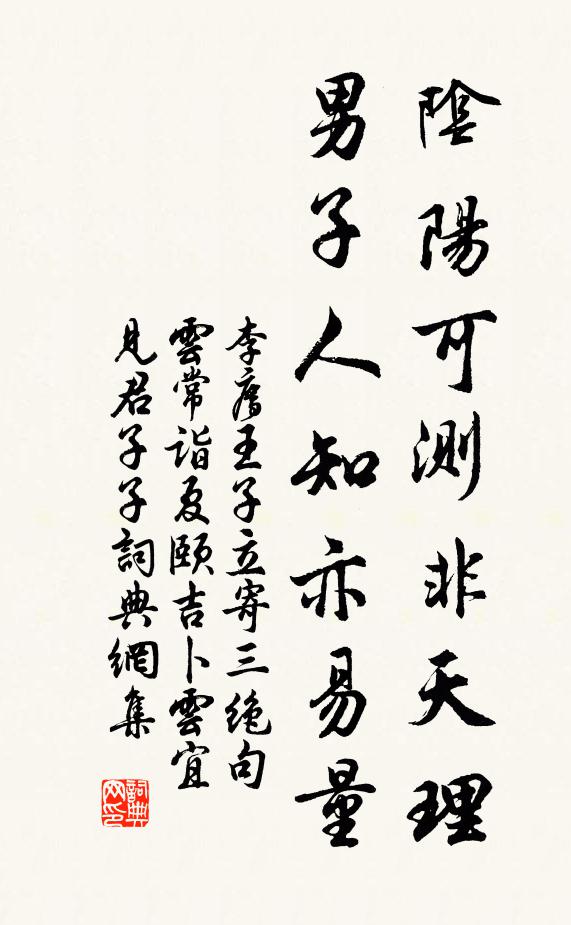 陰陽可測非天理
男子人知亦易量
李廌王子立寄三絶句
雲常詣夏頤吉卜雲宜
見君子子詞典網集
詞典网印